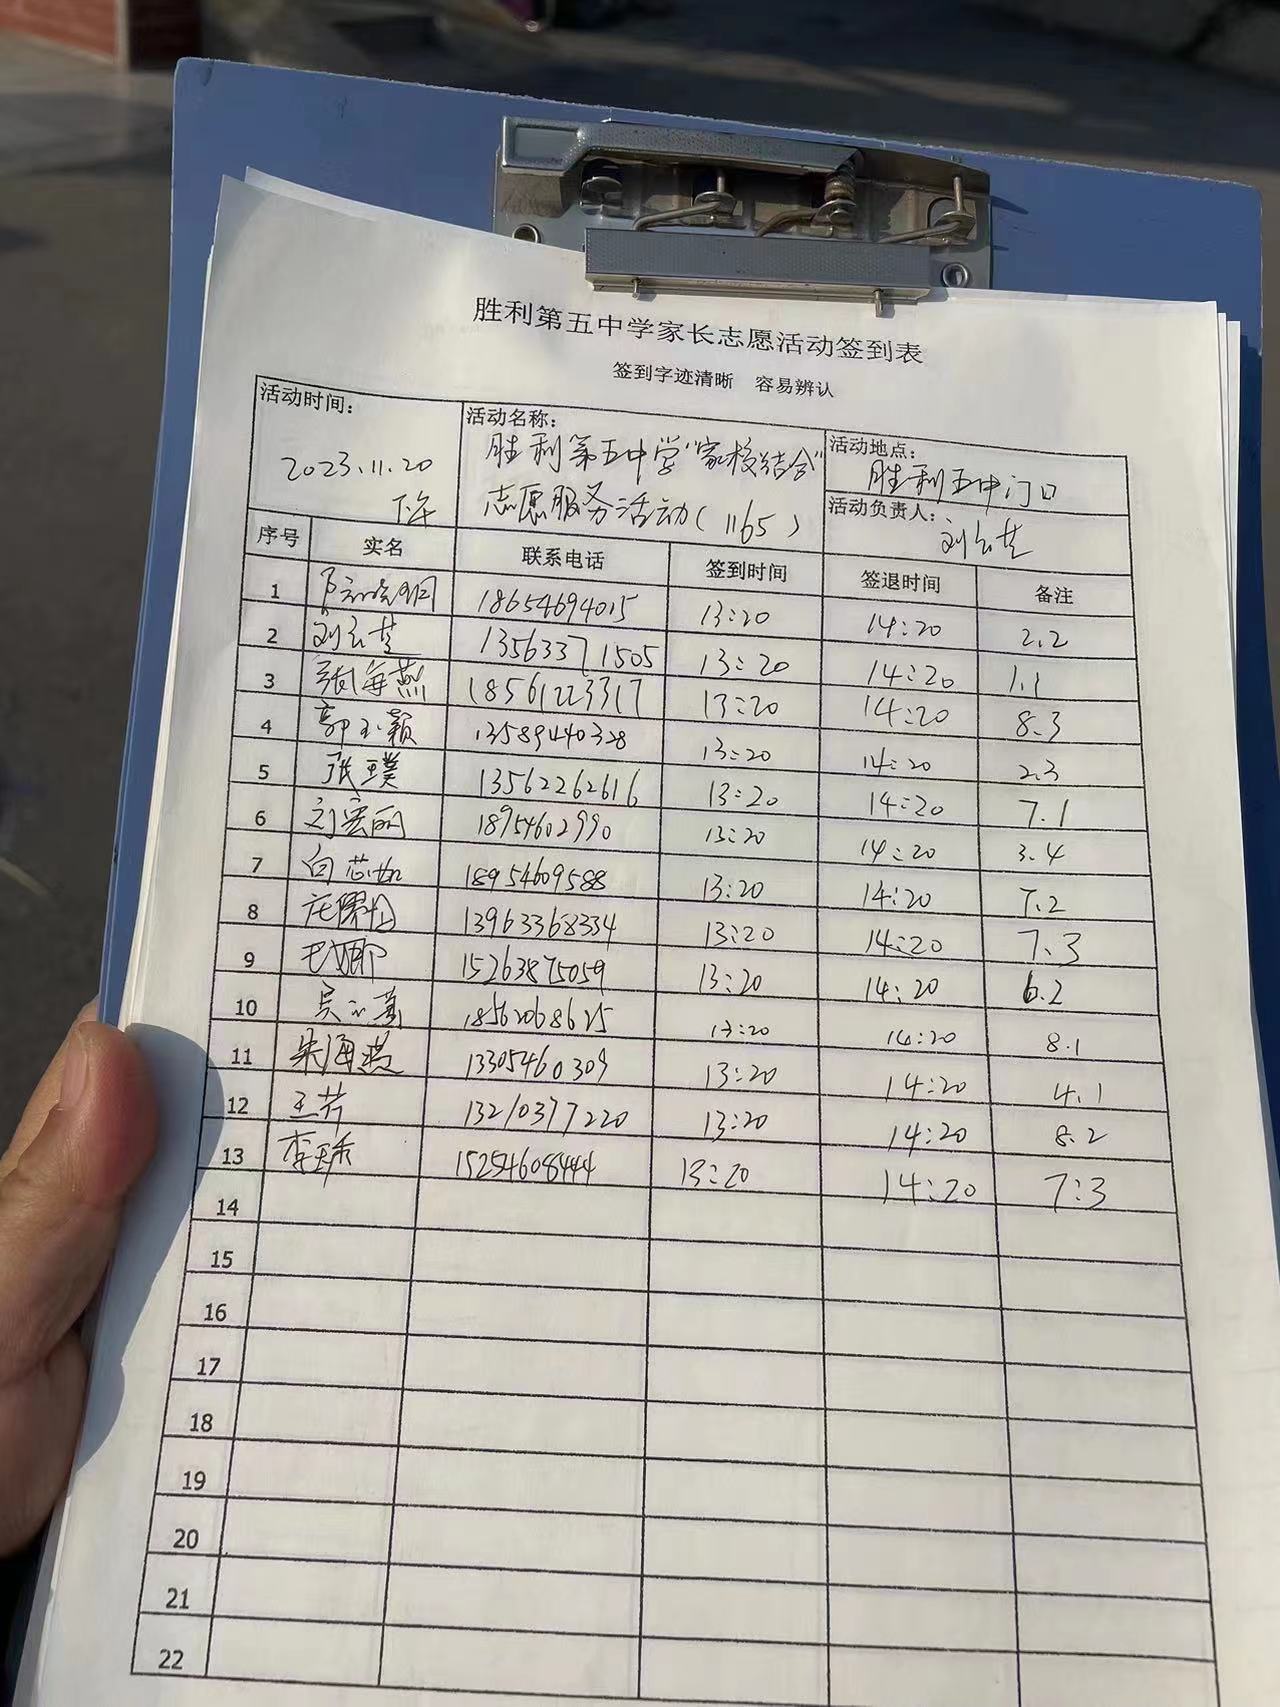 胜利第五中学家长志愿活动签到表
签到字迹清晰 容易辨认
活动时间: 2023.11.20 下午
活动名称: 胜利第五中学"家校结合"
志愿服务活动(1165)
活动地点: 胜利五中门口
活动负责人: 刘云芝
序号 实名 联系电话 签到时间 签退时间 备注
1 18654694015 13:20 14:20 2.2
2 刘云芝 13563371505 13:20 14:20 1.1
3 张海燕 18561223317 13:20 14:20 8.3
4 郭玉颖 13589440328 13:20 14:20 2.3
5 张璞 13562262616 13:20 14:20 7.1
6 刘宏丽 18954602990 13:20 14:20 3.4
7 18954609588 13:20 14:20 7.2
8 13963368334 13:20 14:20 7.3
9 毛娜 15263875059 13:20 14:20 6.2
10 18562068625 13:20 14:20 8.1
11 朱海燕 13305460309 13:20 14:20 4.1
12 王芳 13210377220 13:20 14:20 8.2
13 15254608444 13:20 14:20 7:3
14
15
16
17
18
19
20
21
22